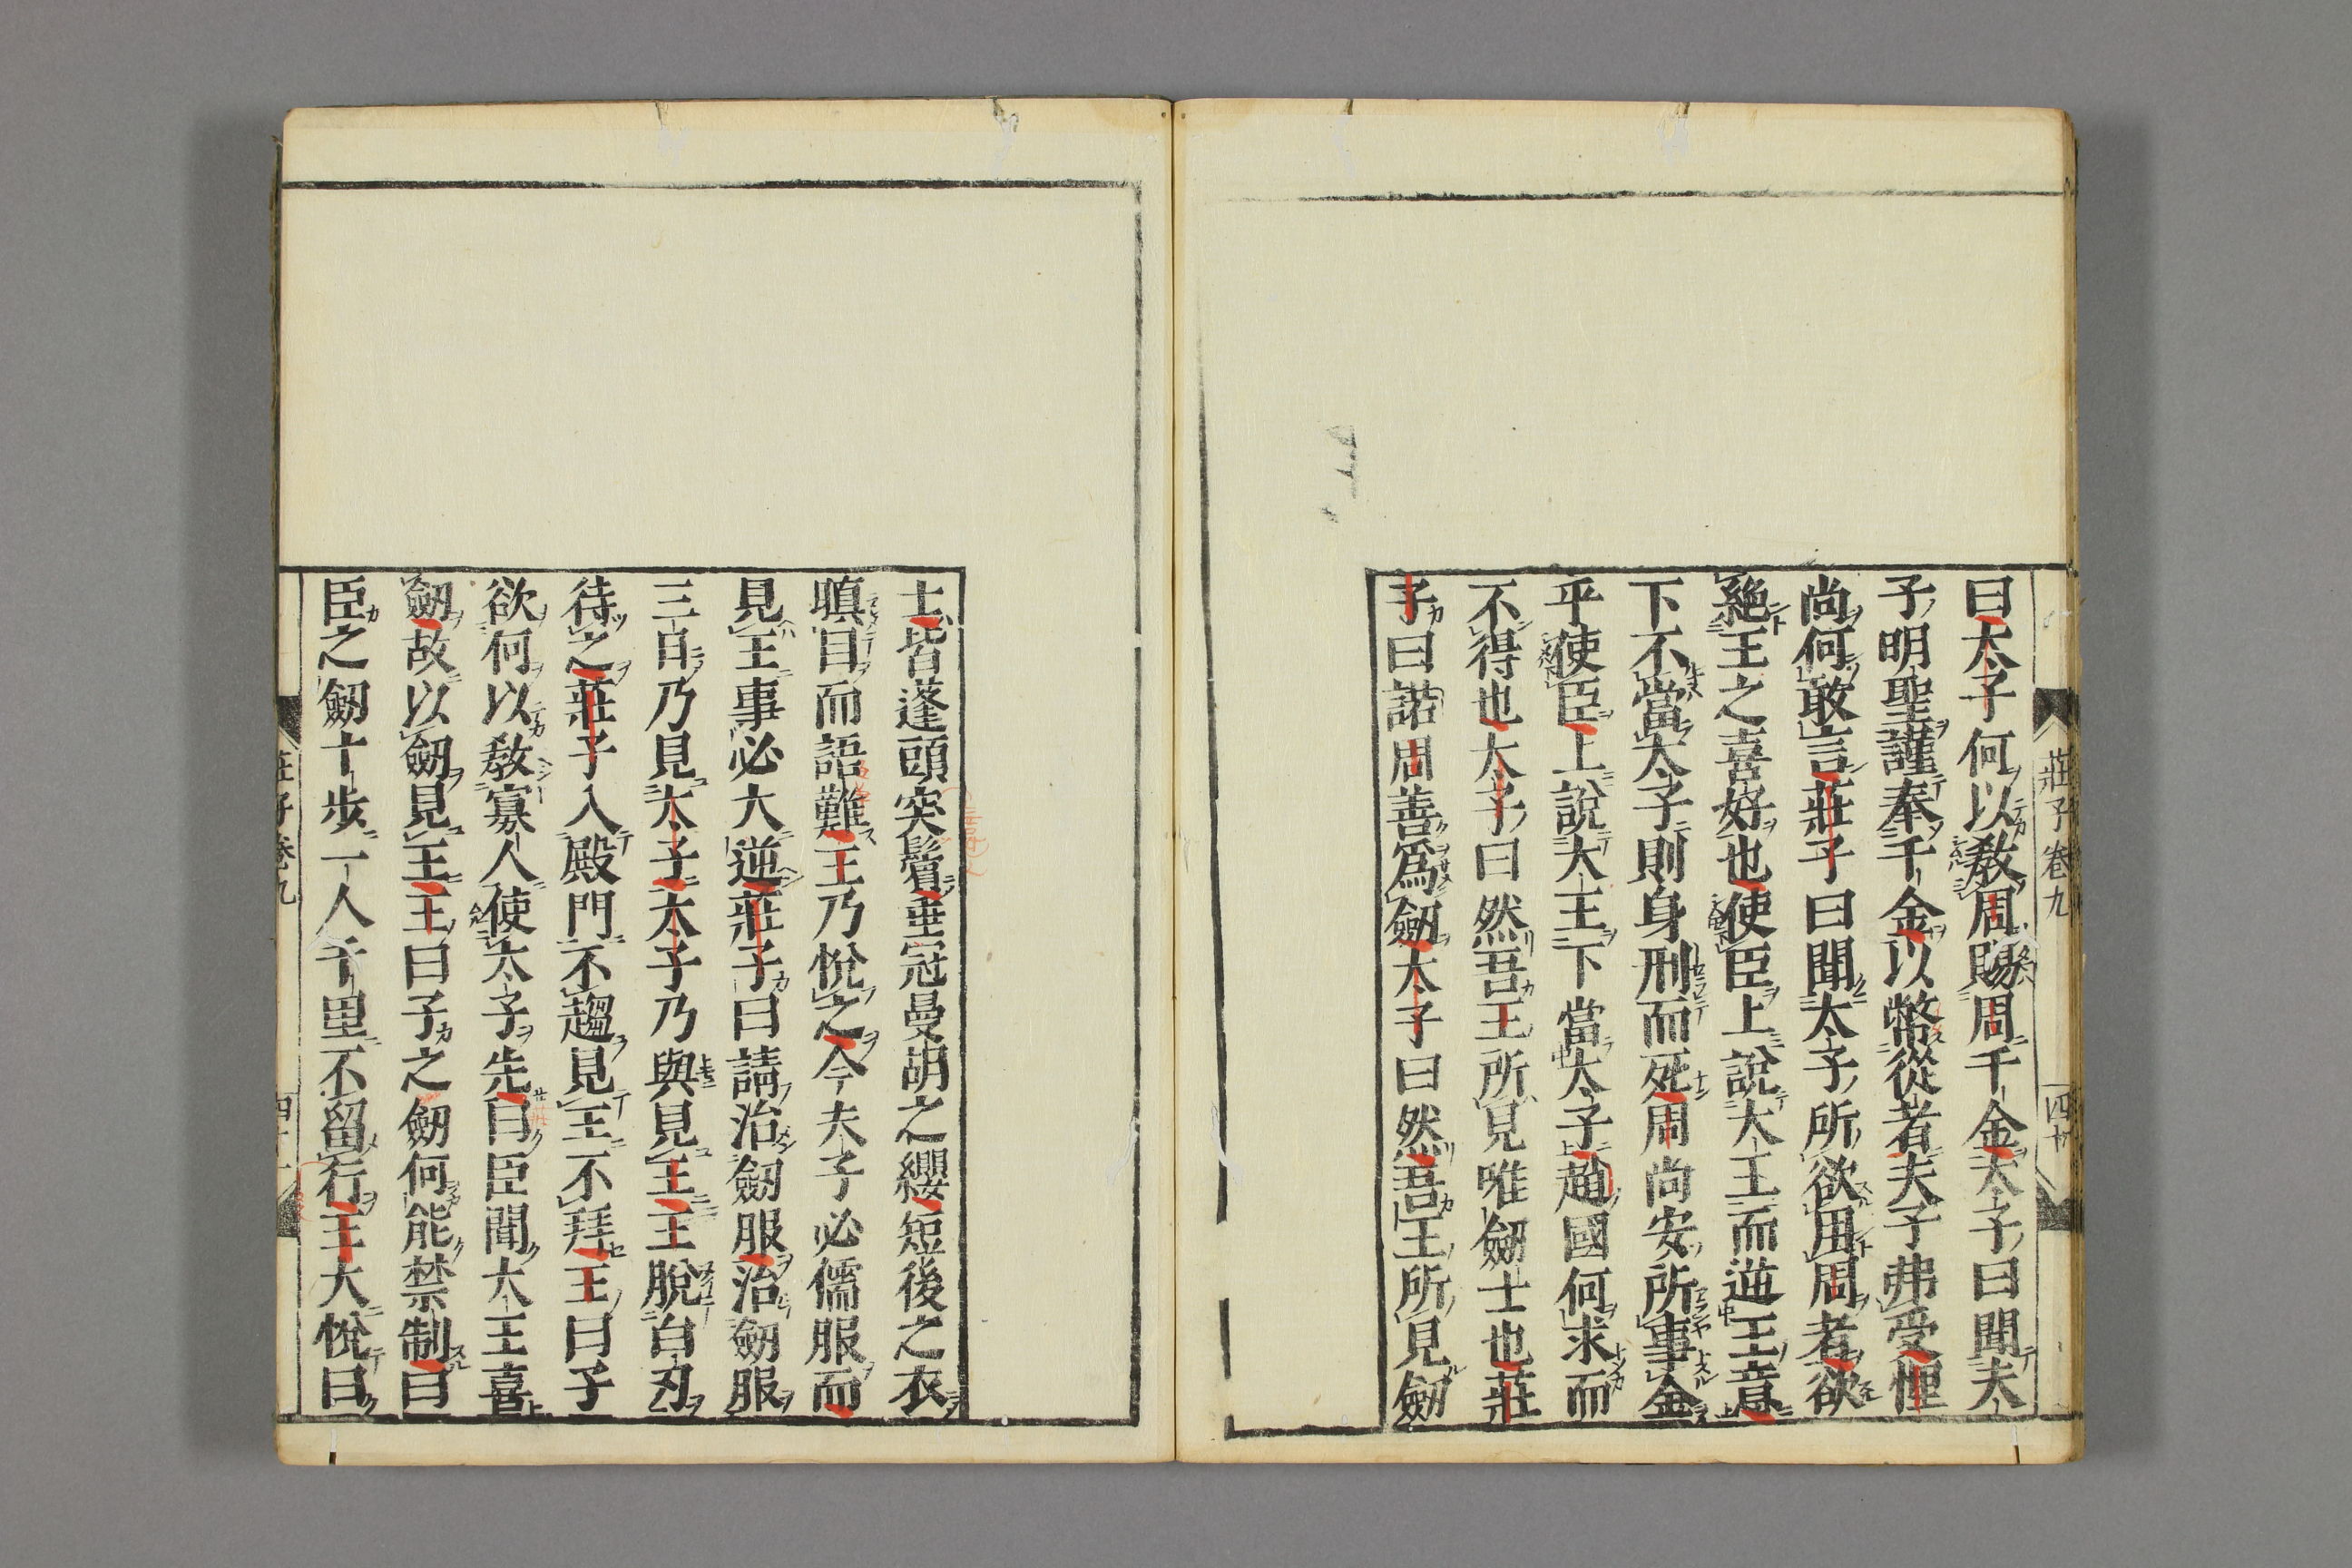 曰太子何以敎周賜周千金太子曰聞夫
子明聖謹奉千金以幣從者夫子弗受悝
尚何敢言莊子曰聞太子所欲用周者欲
絶王之喜好也使臣上說大王而逆王意
下不當太子則身刑而死周尚安所事金
乎使臣上說大王下當太子趙國何求而
不得也太子曰然吾王所見唯劒士也莊
子曰諾周善爲劒太子曰然吾王所見劒
莊子卷九
四十
士皆蓬頭突鬢垂冠曼胡之纓短後之衣
瞋目而語難王乃悅之今夫子必儒服而
見王事必大逆莊子曰請治劒服治劒服
三日乃見太子太子乃與見王王脫白刃
待之莊子入殿門不趨見王不拜王曰子
欲何以敎寡人使太子先曰臣聞大王喜
劒故以劒見王王曰子之劒何能禁制曰
臣之劒十步一人千里不留行王大悅曰
莊子卷九